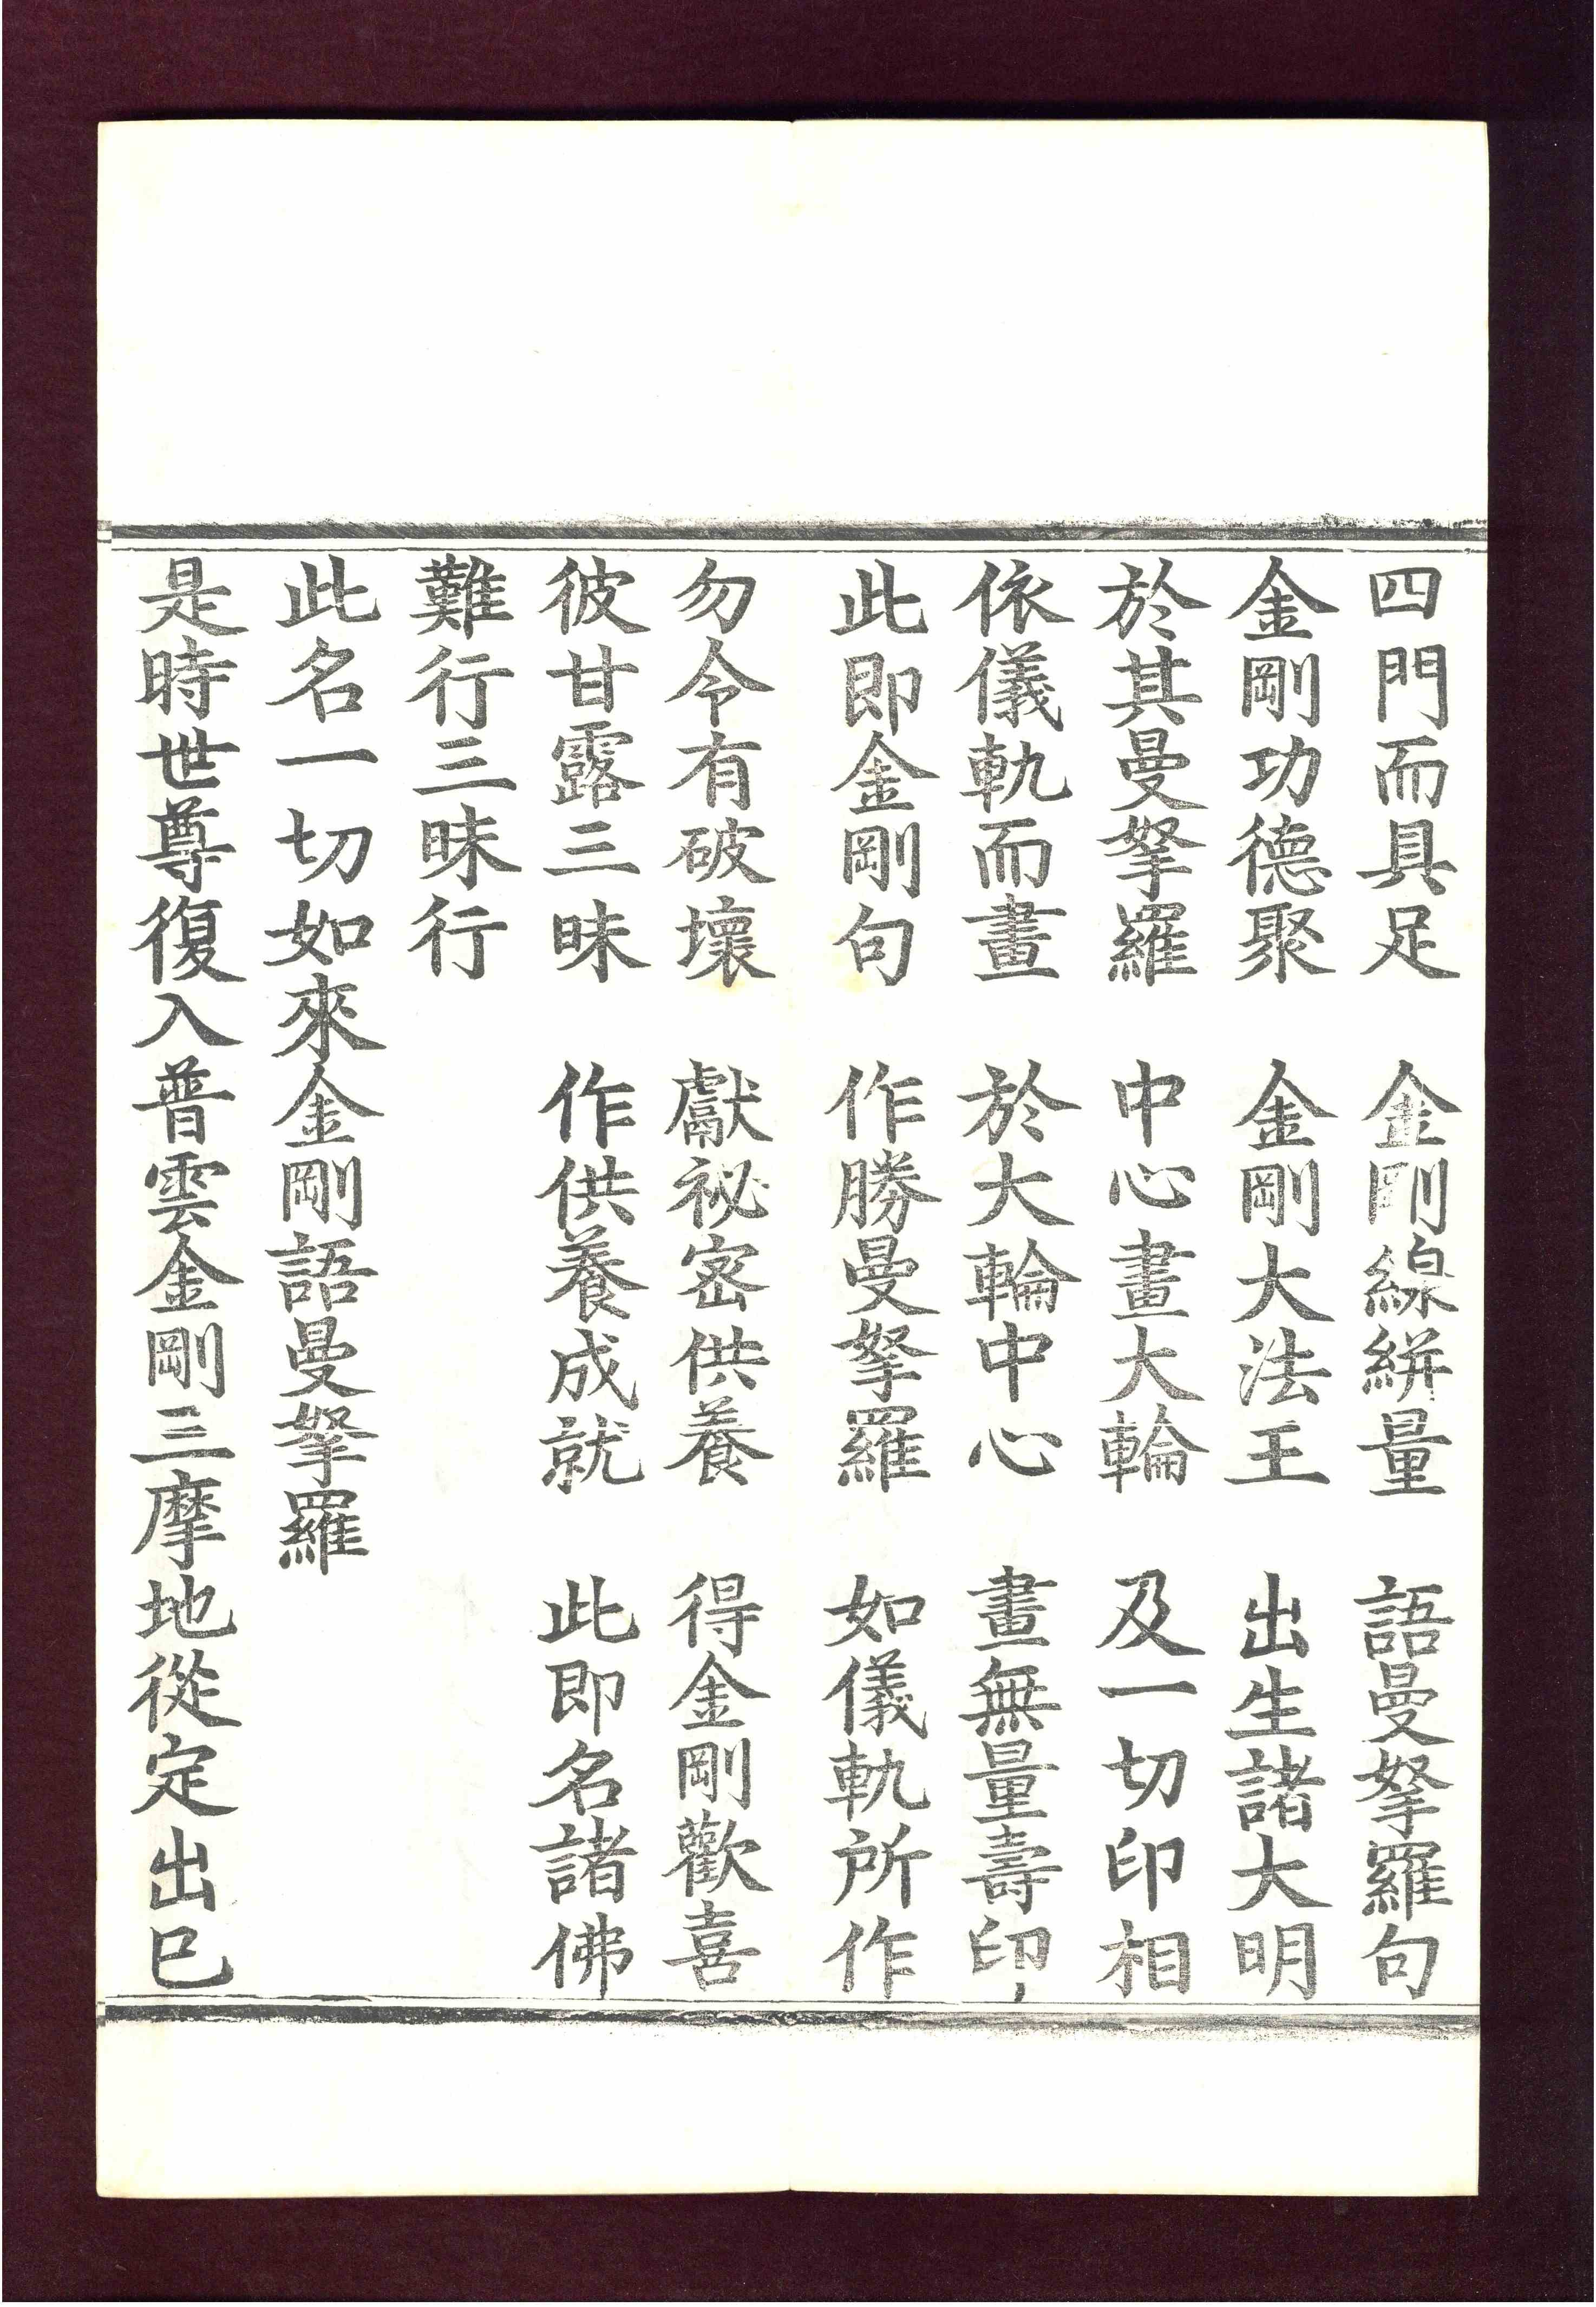 四門而具足　金剛線絣量　語曼拏羅句
金剛功德聚　金剛大法王　出生諸大明
於其曼拏羅　中心畫大輪　及一切印相
依儀軌而畫　於大輪中心　畫無量壽印
此即金剛句　作勝曼拏羅　如儀軌所作
勿令有破壞　獻祕密供養　得金剛歡喜
彼甘露三昧　作供養成就　此即名諸佛
難行三昧行
此名一切如來金剛語曼拏羅
是時世尊復入普雲金剛三摩地從定出已